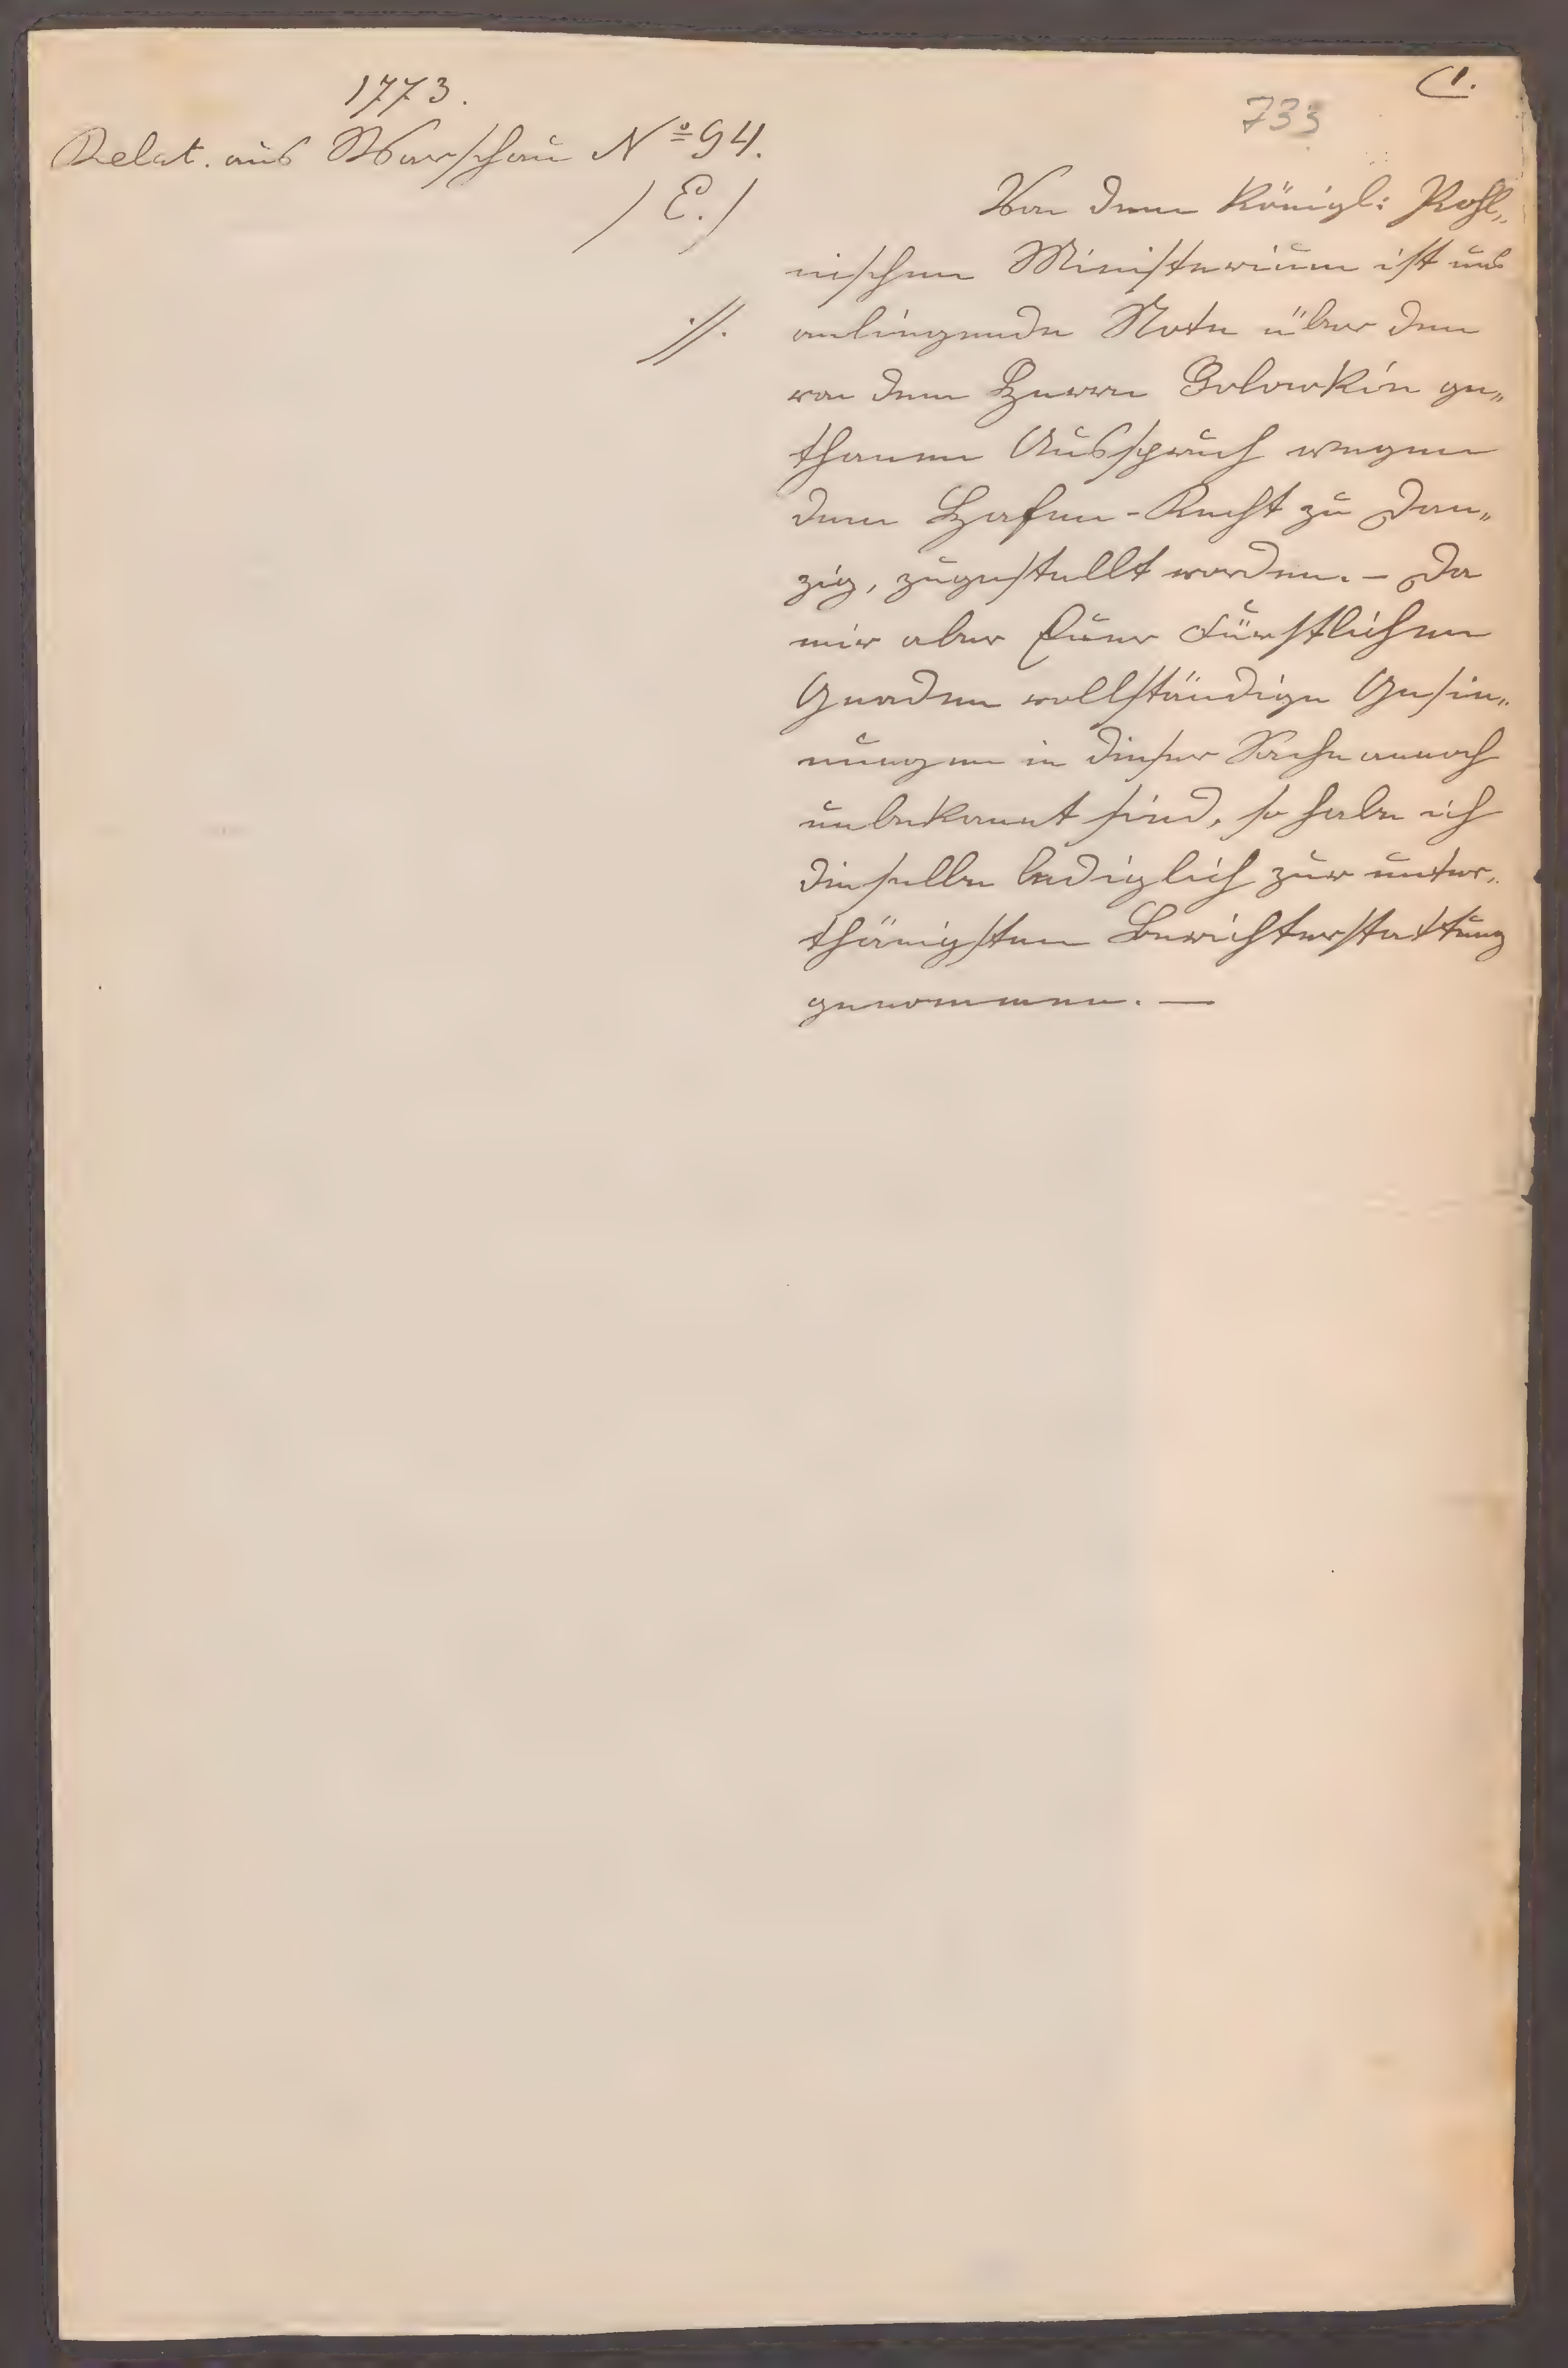 1773.
Relat. aus Warschau Nº 94.
/ E. /
1.
733
Von dem Königl: Pohl„
nischen Ministerium ist uns
·//. anliegende Note über den
von dem Herrn Golowkin ge„
thanen Ausspruch wegen
dem Hafen-Recht zu Dan„
zig, zugestellt worden. – Da
mir aber Euer Fürstlichen
Gnaden vollständige Gesin„
nungen in dieser Sache annoch
unbekannt sind, so habe ich
dieselbe lediglich zur unter„
thänigsten Berichterstattung
genommen. —